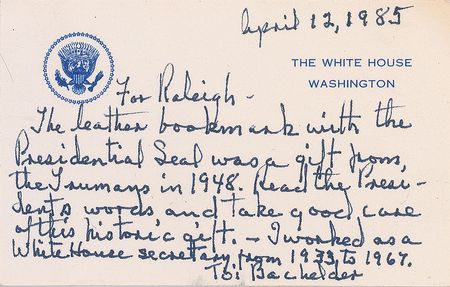 April 12, 1985
THE WHITE HOUSE
WASHINGTON
For Raleigh -
The leather bookmark with the
Presidential Seal was a gift from
the Trumans in 1948. Read the Presi-
dent's words and take good care
of this historic gift. - I worked as a
White House secretary from 1933 to 1967.
Toi Bachelder